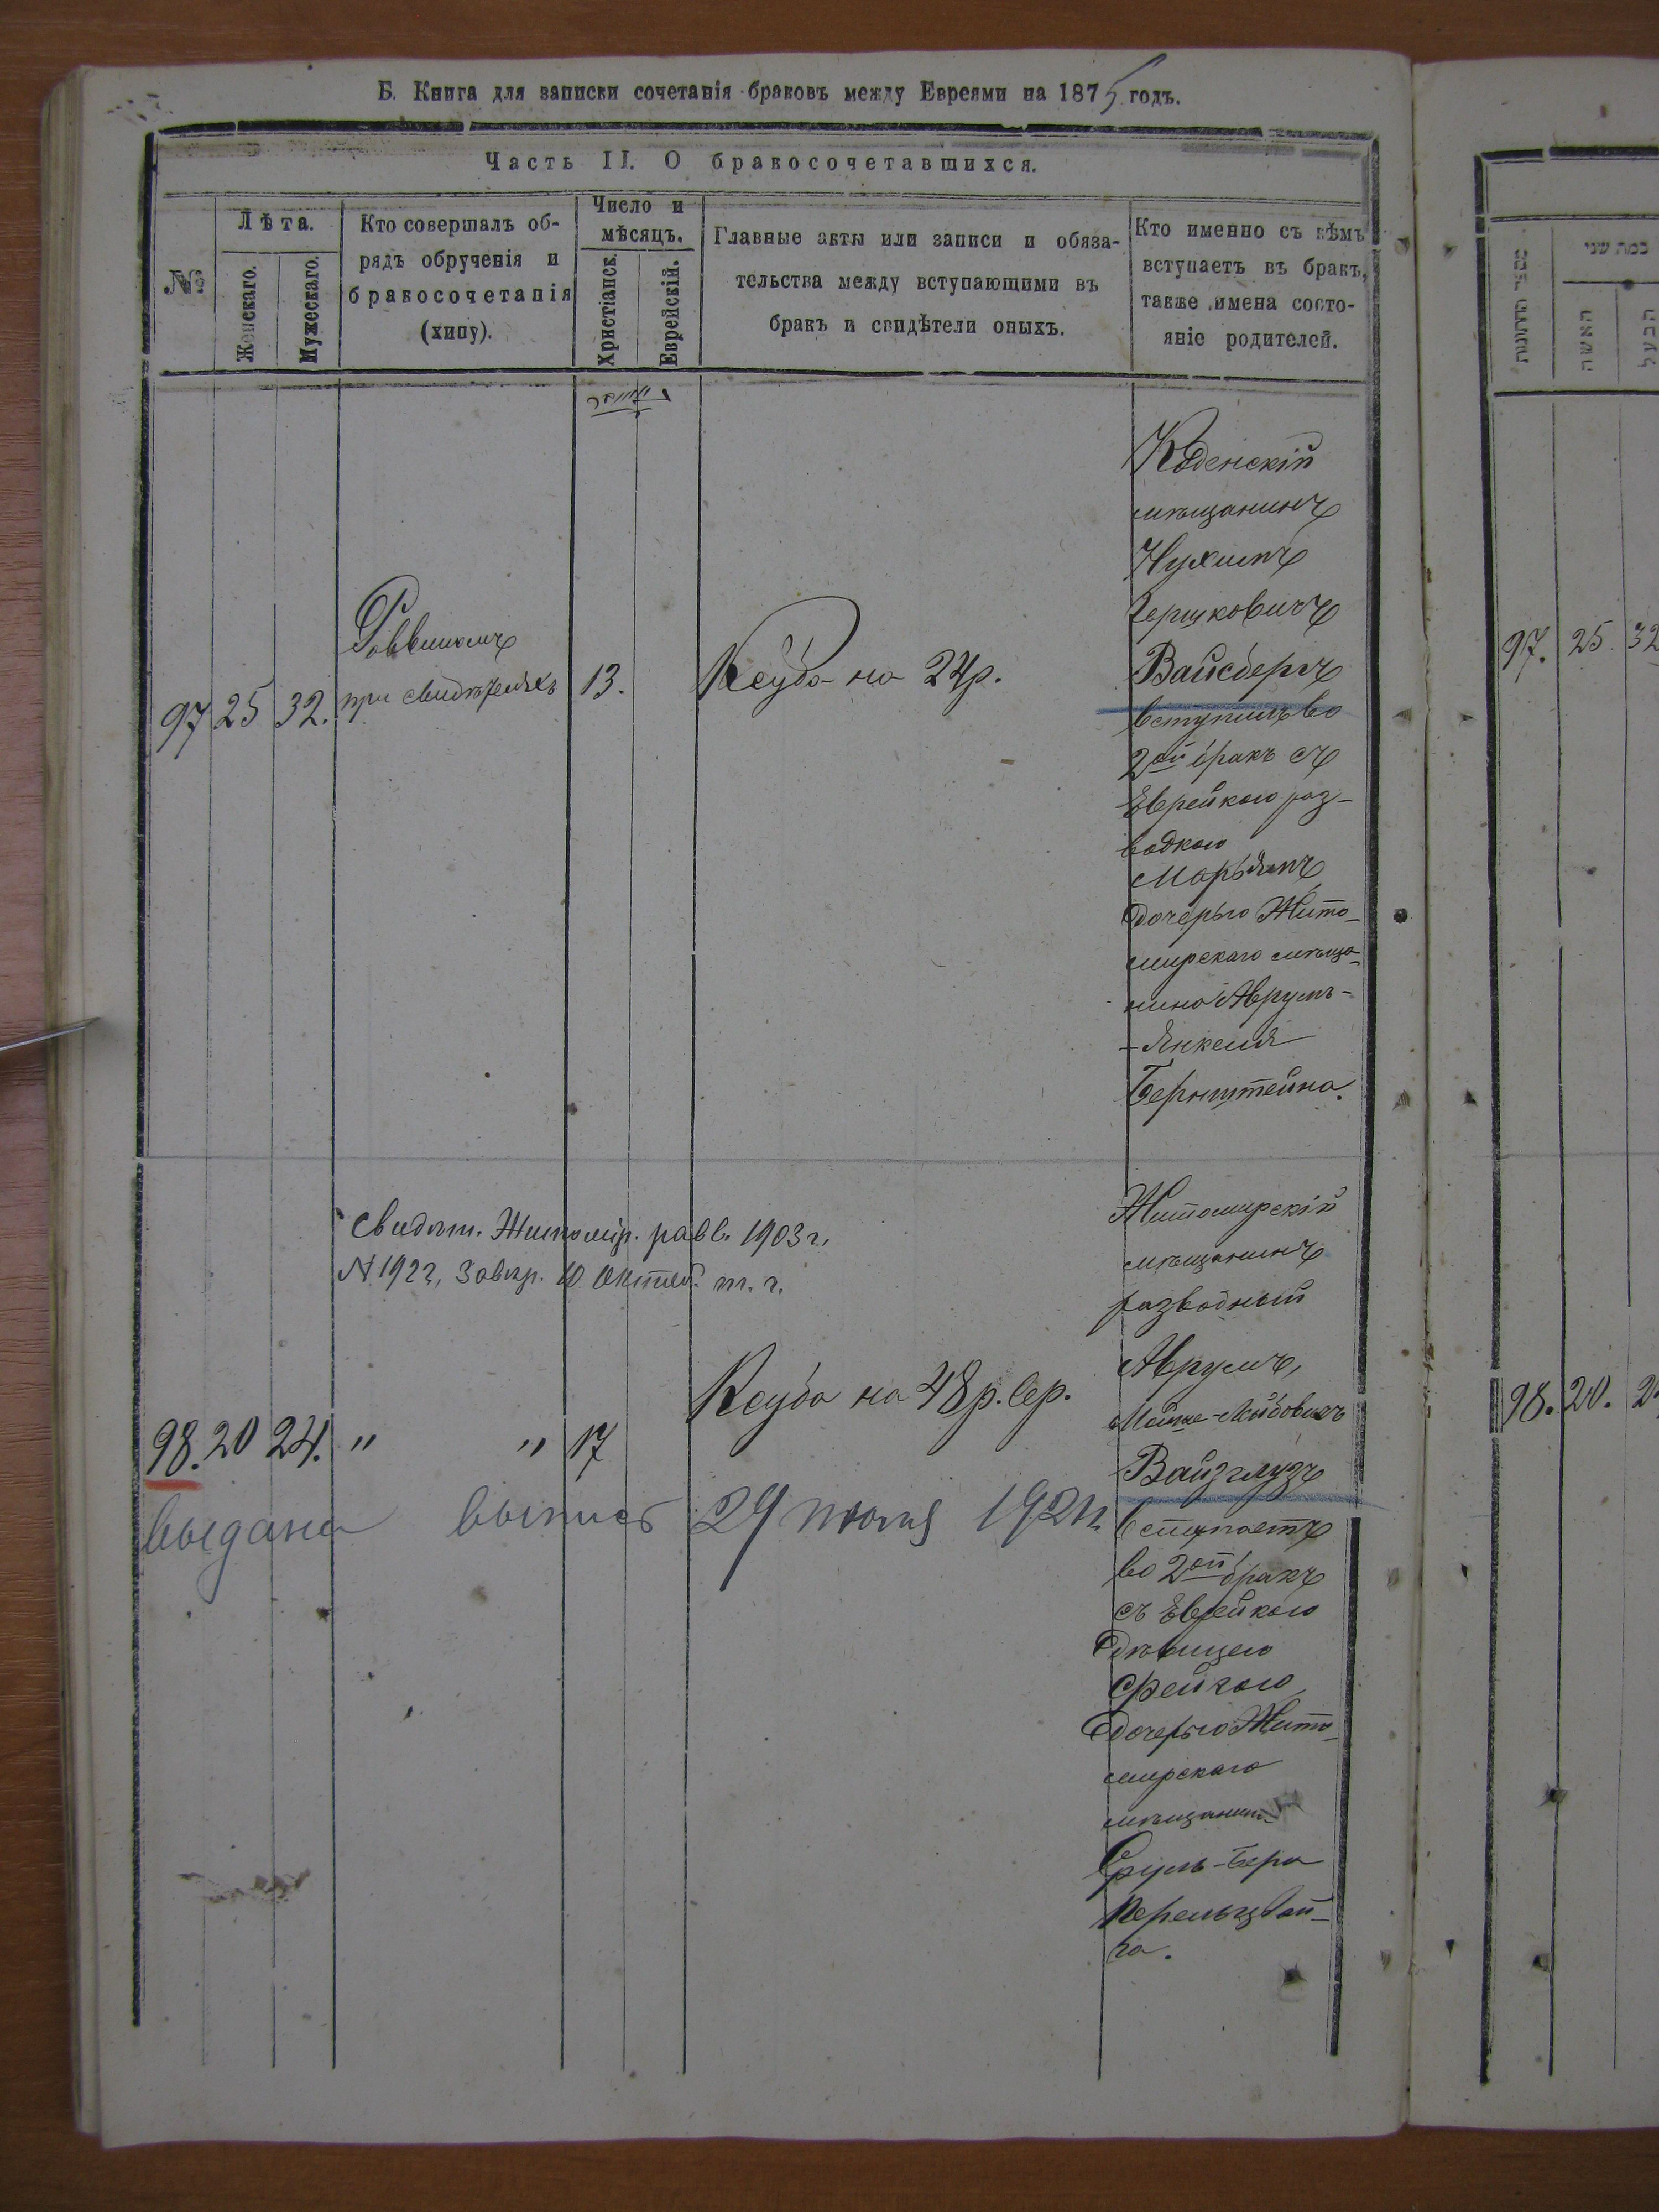 Б. Книга для записки сочетанія браковъ между Евреями на 1875 годъ.
Часть II. О бракосочетавшихся.
№
Лѣта.
Женскаго.
Мужескаго.
Кто совершалъ об-
рядъ обрученія и
бракосочетанія
(хупу).
Число и
мѣсяцъ.
Христіанск.
Еврейскій.
Главные акты или записи и обяза-
тельства между вступающими въ
бракъ и свидѣтели оныхъ.
Кто именно съ кѣмъ
вступаетъ въ бракъ,
также имена состо-
яніе родителей.
97 25 32.
Раввиномъ
при свидѣтеляхъ
13.
Ксуба на 24р.
Коденскій
мѣщанинъ
Нухимъ
Гершковичъ
Вайсбергъ
вступилъ во
2ой бракъ съ
Еврейкою раз-
водкою
Марьямъ
дочерью Жито-
мирскаго мѣща-
нина Аврумъ-
-Янкеля
Бернштейна.
Свидѣт. Житомір. равв. 1903 г.
N 1922, Завѣр. 10 Октяб. т. г.
98. 20 24. " " 17
Ксуба на 48 р. сер.
Житомирскій
мѣщанинъ
разводный
Аврумъ,
-Лейбовичъ
Вайзглузъ
вступаетъ
во 2ой бракъ
съ Еврейкою
дѣвицею
Фейгою
дочерью Жито-
мирскаго
мѣщанина
Сруль-Бера
Перельцвай-
га.
выдана выпись 29 июля 192
מספר החתונות
כמה שני
האשה
הבעל
97. 25. 32
98. 20. 2